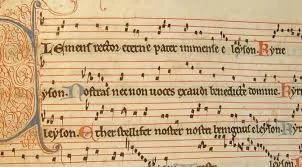 Clemens rector eterne pater immense eleyson. Kyrie
yson. Nostras nec non voces exaudi benedicte domine. Kyrie
leyson. Ether stellifer noster nostri benignus eleyson.